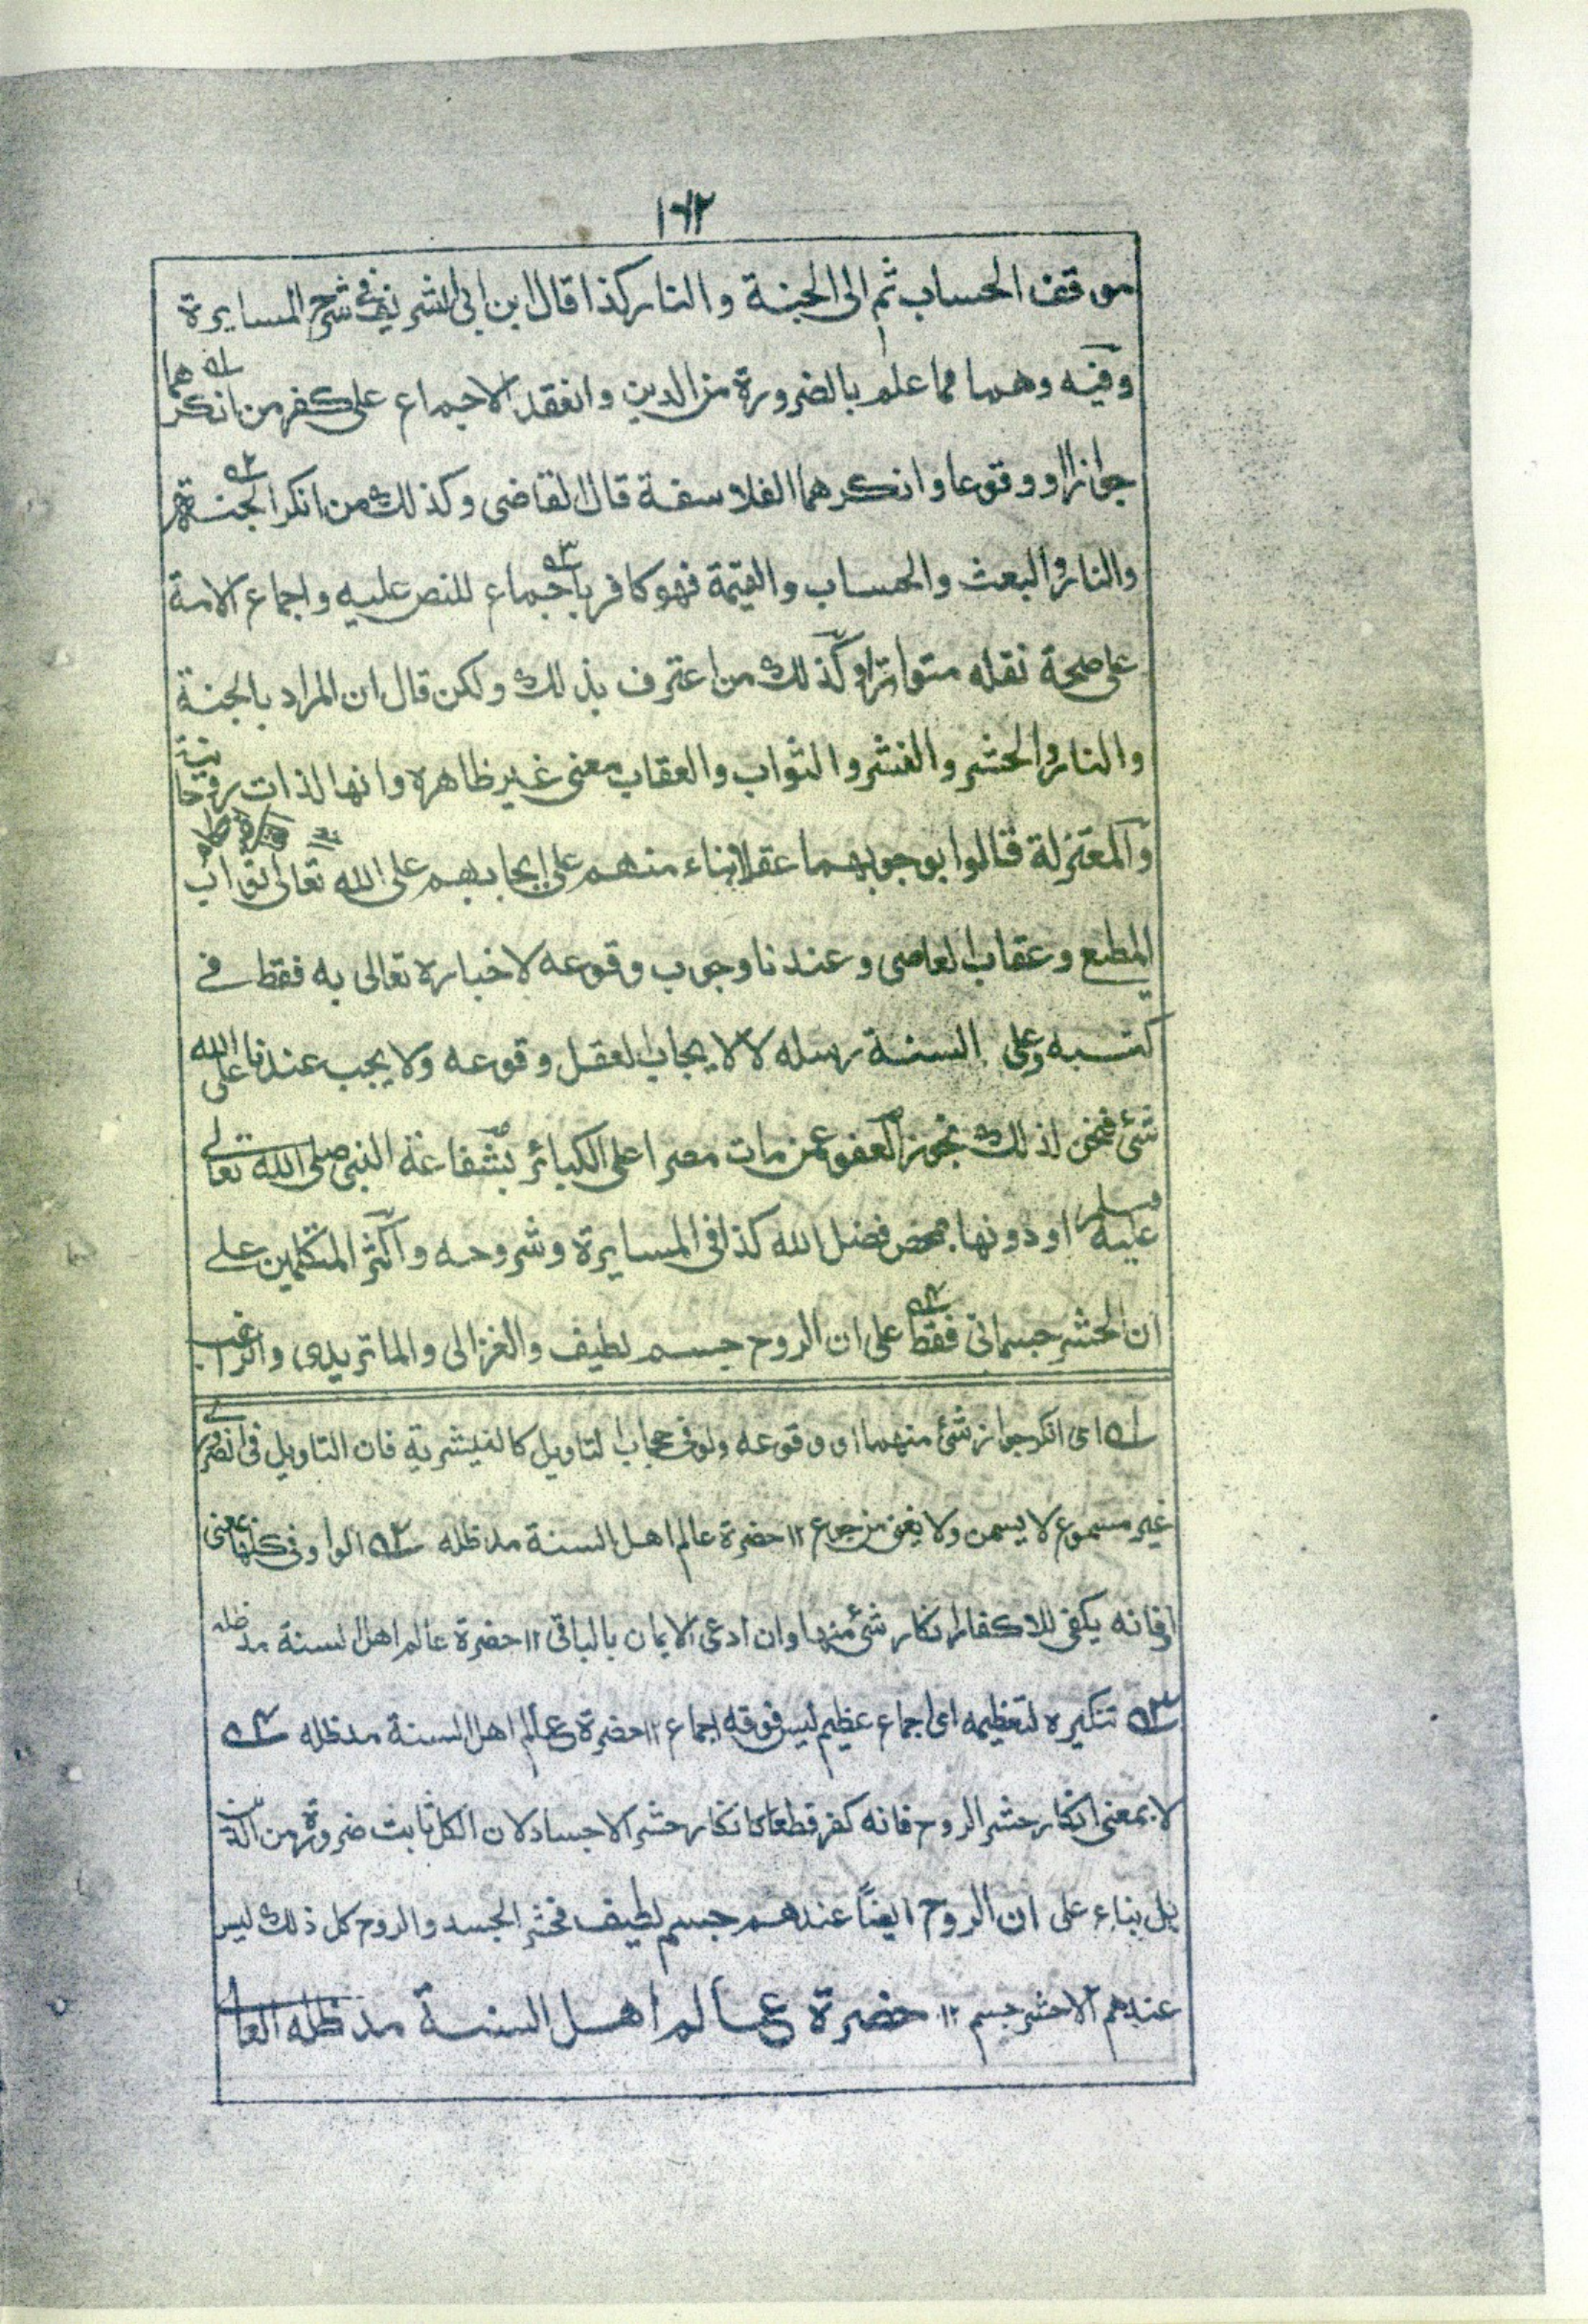 ١٦٢
موقف الحساب ثم الى الجنة والنار كذا قال ابن ابى الشريف فى شرح المسايرة
وفيه وهما مما علم بالضرورة من الدين وانعقد الاجماع على كفر من انكرهما ١ه
جوازا او وقوعا وانكرهما الفلاسفة قال القاضى وكذلك من انكر الجنة ٢ه
والنار والبعث والحساب والقيمة فهو كافر باجماع ٣ه للنص عليه واجماع الامة
على صحة نقله متواترا وكذلك من اعترف بذلك ولكن قال ان المراد بالجنة
والنار والحشر والنشر والثواب والعقاب معنى غير ظاهره وانها لذات روحانية
والمعتزلة قالوا بوجوبهما عقلا بناء منهم على ايجابهم على الله تعالى ثواب
المطيع وعقاب العاصى وعندنا وجوب وقوعه لاخباره تعالى به فقط فى
كتبه وعلى السنة رسله لا لايجاب العقل وقوعه ولا يجب عندنا على الله
شئ فنحن لذلك نجوز العفو عمن مات مصرا على الكبائر بشفاعة النبى صلى الله تعالى
عليه وسلم او دونها بمحض فضل الله كذا فى المسايرة وشروحه واكثر المتكلمين على
ان الحشر جسمانى فقط ٤ه على ان الروح جسم لطيف والغزالى والماتريدى والراغب
١ه اى انكر جواز شئ منهما او وقوعه ولو فى حجاب التاويل كالنيشرية فان التاويل فى الضرورى
غير مسموع لا يسمن ولا يغنى من جوع ١٢ حضرة عالم اهل السنة مد ظله ٢ه الواو فى كلها بمعنى
او فانه يكفى للاكفار انكار شئ منها وان ادعى الايمان بالباقى ١٢ حضرة عالم اهل السنة مد ظله
٣ه تنكيره لتعظيمه اى اجماع عظيم ليس فوقه اجماع ١٢ حضرة عالم اهل السنة مد ظله ٤ه
لا بمعنى انكار حشر الروح فانه كفر قطعا كانكار حشر الاجساد لان الكل ثابت ضرورة من الدين
بل بناء على ان الروح ايضاً عندهم جسم لطيف فحشر الجسد والروح كل ذلك ليس
عندهم الا حشر جسم ١٢ حضرة عالم اهل السنة مد ظله العالى